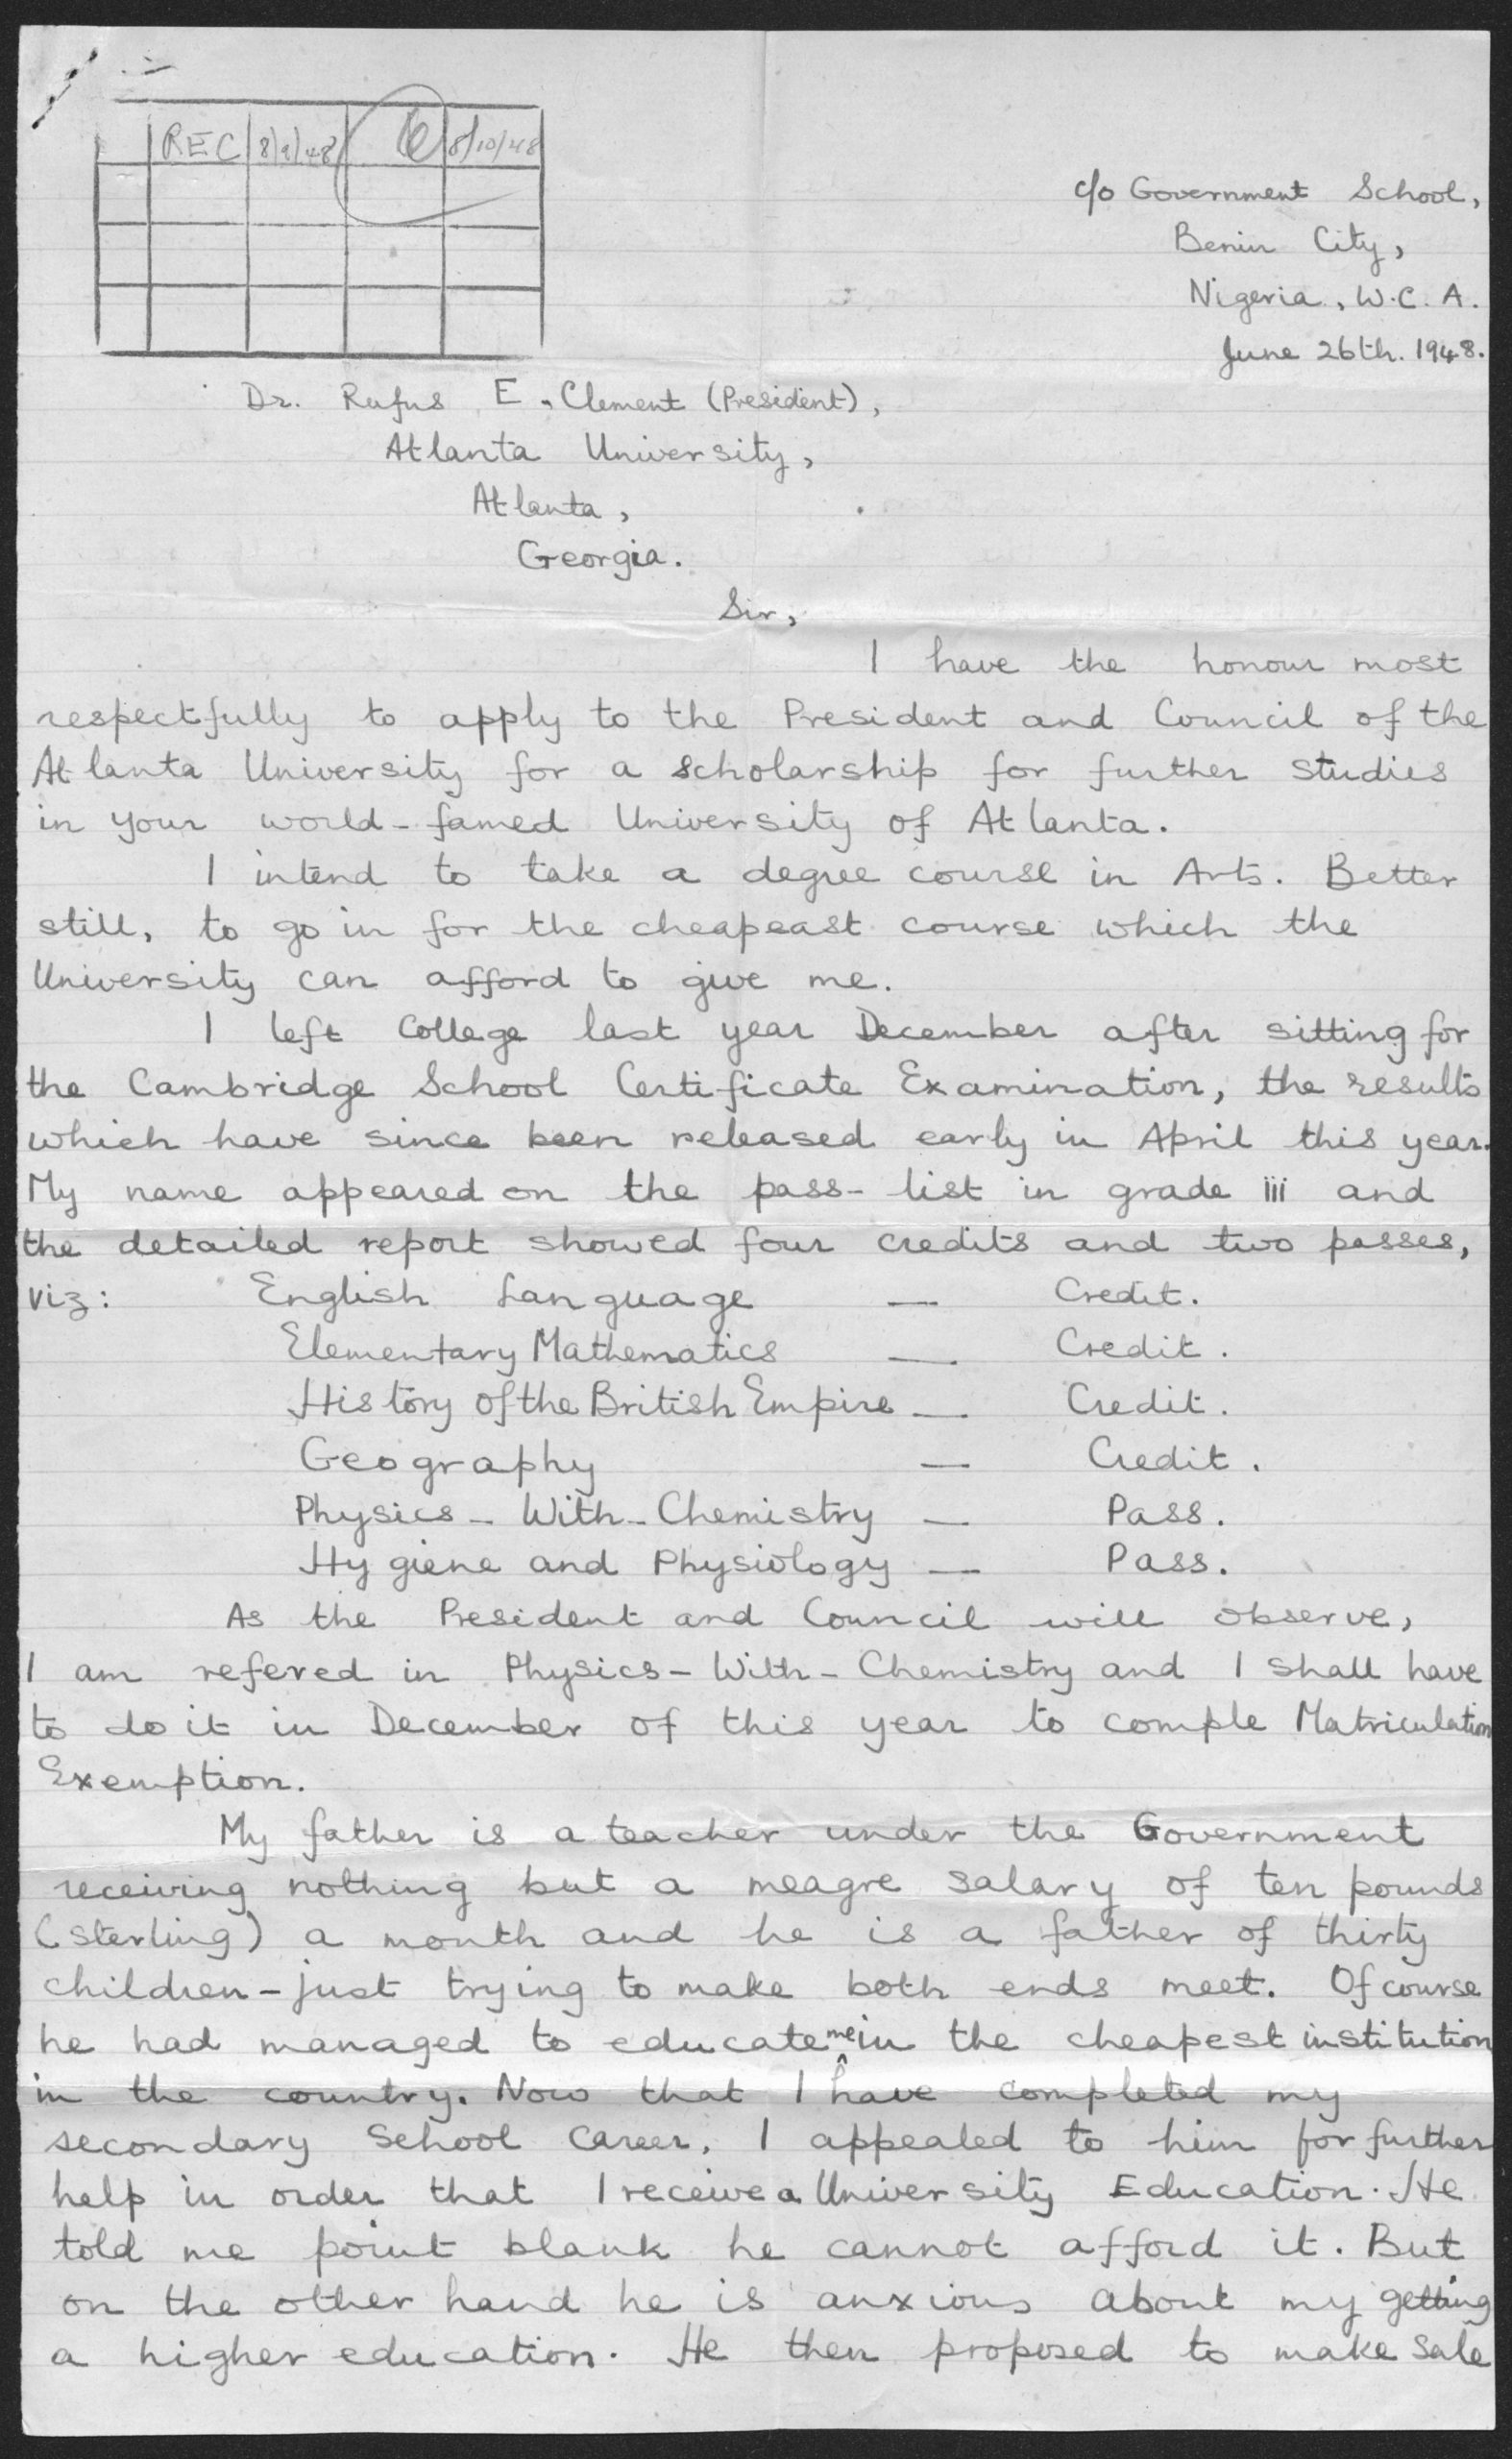 REC 8/9/48 8/10/48
c/o Government School,
Benin City,
Nigeria, W.C.A.
June 26th. 1948.
Dr. Rufus E. Clement (President),
Atlanta University,
Atlanta,
Georgia.
Sir,
I have the honour most
respectfully to apply to the President and Council of the
Atlanta University for a scholarship for further studies
in your world-famed University of Atlanta.
I intend to take a degree course in Arts. Better
still, to go in for the cheapeast course which the
University can afford to give me.
I left College last year December after sitting for
the Cambridge School Certificate Examination, the results
which have since been released early in April this year.
My name appeared on the pass-list in grade iii and
the detailed report showed four credits and two passes,
viz: English Language — Credit.
Elementary Mathematics — Credit.
History of the British Empire — Credit.
Geography — Credit.
Physics-With-Chemistry — Pass.
Hygiene and Physiology — Pass.
As the President and Council will observe,
I am refered in Physics-With-Chemistry and I shall have
to do it in December of this year to comple Matriculation
Exemption.
My father is a teacher under the Government
receiving nothing but a meagre salary of ten pounds
(sterling) a month and he is a father of thirty
children-just trying to make both ends meet. Of course
he had managed to educate me in the cheapest institution
in the country. Now that I have completed my
secondary School Career, I appealed to him for further
help in order that I receive a University Education. He
told me point blank he cannot afford it. But
on the other hand he is anxious about my getting
a higher education. He then proposed to make sale